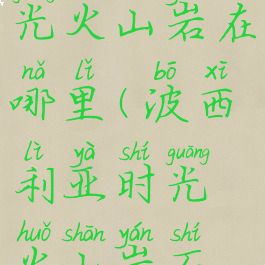 光火山岩在
nǎ lǐ bō xī
哪里(波西
lì yà shí guāng
利亚时光
huǒ shān yán shí
火山岩石